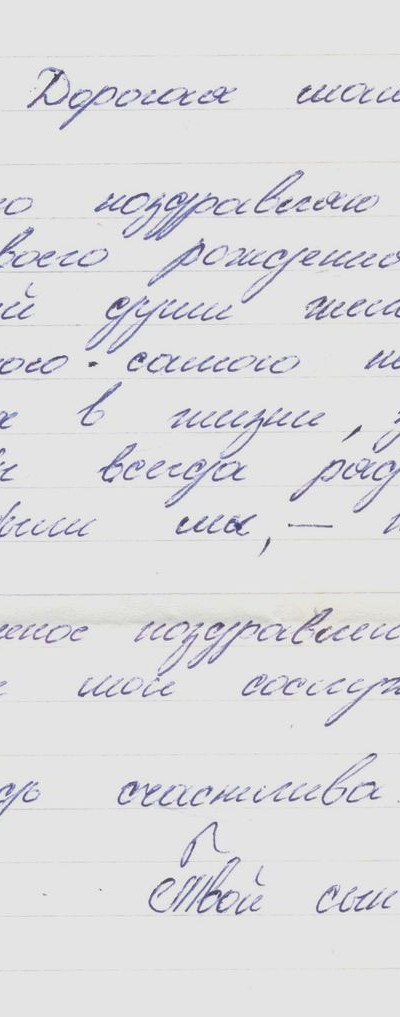 Дорогая мам
го поздравляю
воего рождения
ей души жел
ого-самого
х в жизни,
ы всегда рад
были мы, —
менное поздравлен
мои сослуж
дь счастлива.
Твой сын